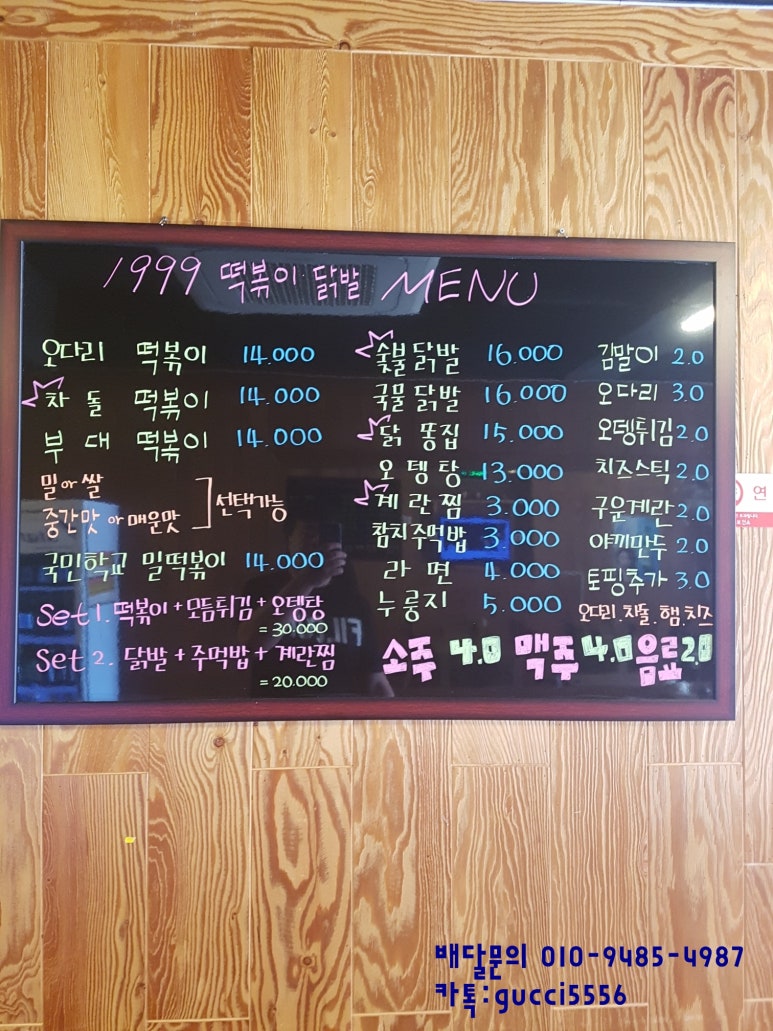 1999 떡볶이 닭발 MENU
오다리 떡볶이 14.000
차돌 떡볶이 14.000
부대 떡볶이 14.000
밀 or 쌀
중간맛 or 매운맛
선택가능
국민학교 밀떡볶이 14.000
Set 1. 떡볶이 + 모듬튀김 + 오뎅탕
= 30.000
Set 2. 닭발 + 주먹밥 + 계란찜
= 20.000
숯불닭발 16.000
국물닭발 16.000
닭똥집 15.000
오뎅탕 13.000
계란찜 3.000
참치주먹밥 3.000
라면 4.000
누룽지 5.000
김말이 2.0
오다리 3.0
오뎅튀김 2.0
치즈스틱 2.0
구운계란 2.0
야끼만두 2.0
토핑추가 3.0
오다리.차돌.햄.치즈
소주 4.0 맥주 4.0 음료 2.0
연
배달문의 010-9485-4987
카톡:gucci5556